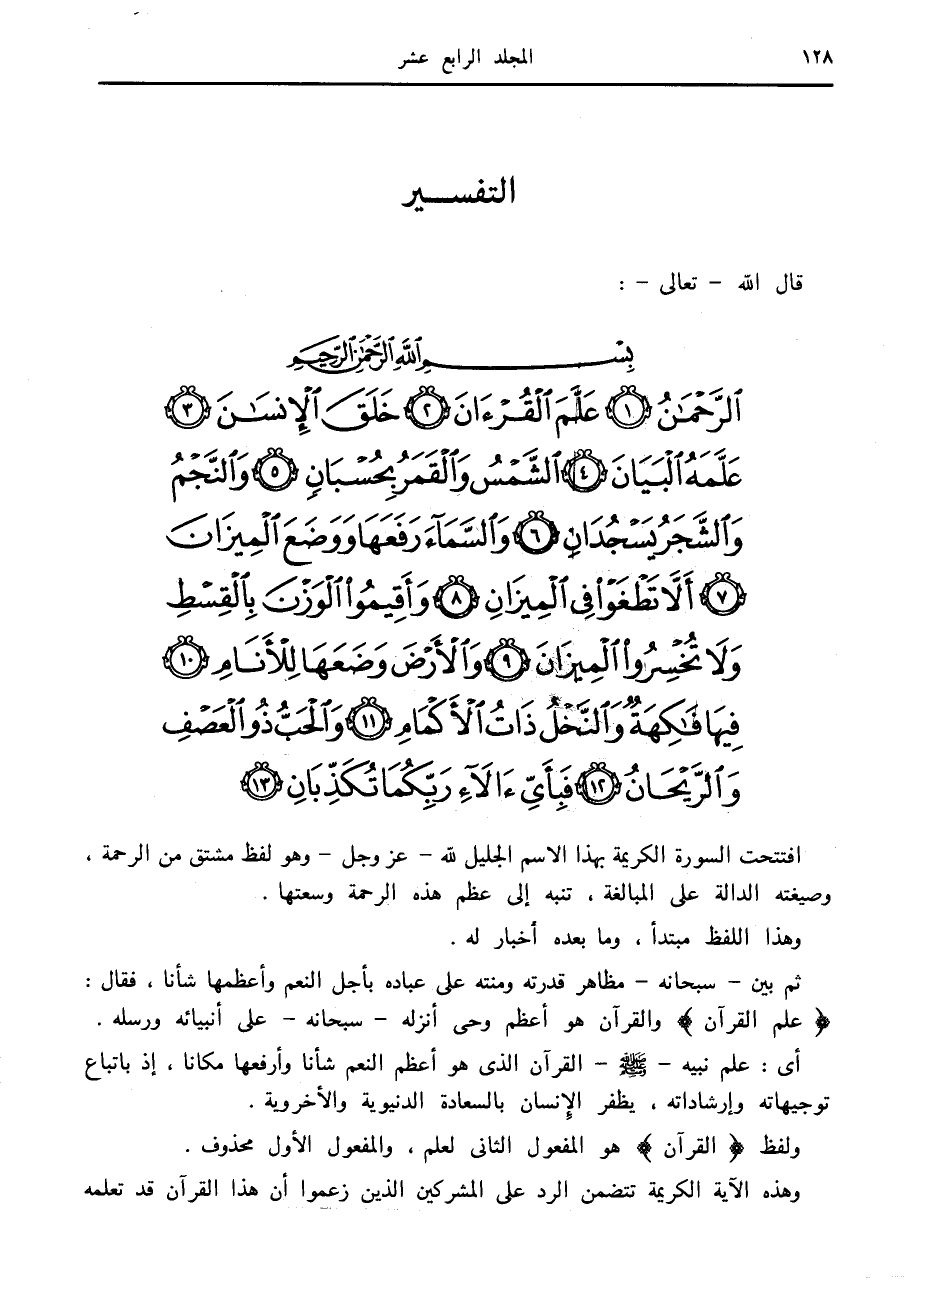 ١٢٨ المجلد الرابع عشر
التفسير
قال الله - تعالى - :
بِسْمِ ٱللَّهِ ٱلرَّحْمَٰنِ ٱلرَّحِيمِ
ٱلرَّحْمَٰنُ ١ عَلَّمَ ٱلْقُرْءَانَ ٢ خَلَقَ ٱلْإِنسَٰنَ ٣
عَلَّمَهُ ٱلْبَيَانَ ٤ ٱلشَّمْسُ وَٱلْقَمَرُ بِحُسْبَانٍ ٥ وَٱلنَّجْمُ
وَٱلشَّجَرُ يَسْجُدَانِ ٦ وَٱلسَّمَآءَ رَفَعَهَا وَوَضَعَ ٱلْمِيزَانَ
٧ أَلَّا تَطْغَوْا۟ فِى ٱلْمِيزَانِ ٨ وَأَقِيمُوا۟ ٱلْوَزْنَ بِٱلْقِسْطِ
وَلَا تُخْسِرُوا۟ ٱلْمِيزَانَ ٩ وَٱلْأَرْضَ وَضَعَهَا لِلْأَنَامِ ١٠
فِيهَا فَٰكِهَةٌ وَٱلنَّخْلُ ذَاتُ ٱلْأَكْمَامِ ١١ وَٱلْحَبُّ ذُو ٱلْعَصْفِ
وَٱلرَّيْحَانُ ١٢ فَبِأَىِّ ءَالَآءِ رَبِّكُمَا تُكَذِّبَانِ ١٣
افتتحت السورة الكريمة بهذا الاسم الجليل لله - عز وجل - وهو لفظ مشتق من الرحمة ،
وصيغته الدالة على المبالغة ، تنبه إلى عظم هذه الرحمة وسعتها .
وهذا اللفظ مبتدأ ، وما بعده أخبار له .
ثم بين - سبحانه - مظاهر قدرته ومنته على عباده بأجل النعم وأعظمها شأنا ، فقال :
﴿ علم القرآن ﴾ والقرآن هو أعظم وحى أنزله - سبحانه - على أنبيائه ورسله .
أى : علم نبيه - ﷺ - القرآن الذى هو أعظم النعم شأنا وأرفعها مكانا ، إذ باتباع
توجيهاته وإرشاداته ، يظفر الإنسان بالسعادة الدنيوية والأخروية .
ولفظ ﴿ القرآن ﴾ هو المفعول الثانى لعلم ، والمفعول الأول محذوف .
وهذه الآية الكريمة تتضمن الرد على المشركين الذين زعموا أن هذا القرآن قد تعلمه